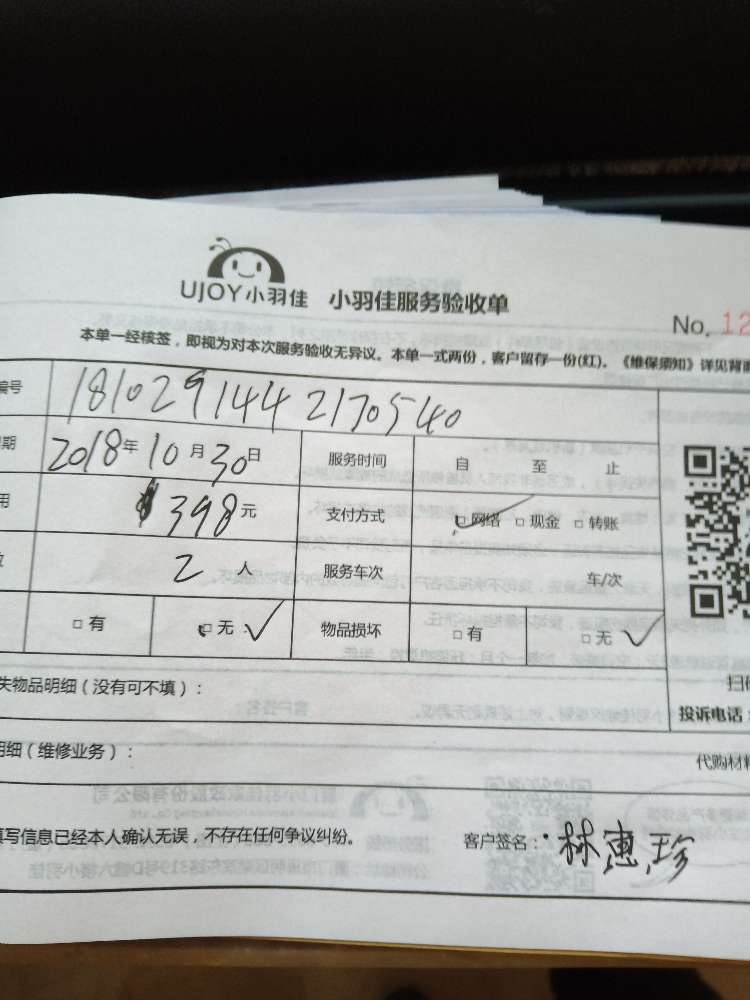 UJOY小羽佳 小羽佳服务验收单
No. 12
本单一经核签，即视为对本次服务验收无异议。本单一式两份，客户留存一份(红)。《维保须知》详见背面
编号 1810291442170540
期 2018年10月30日 服务时间 自 至 止
用 398元 支付方式 □网络 □现金 □转账
2人 服务车次 车/次
□有 □无 √ 物品损坏 □有 □无 √
失物品明细（没有可不填）：
扫
投诉电话：
明细（维修业务）：
代购材料
填写信息已经本人确认无误，不存在任何争议纠纷。 客户签名：林惠珍